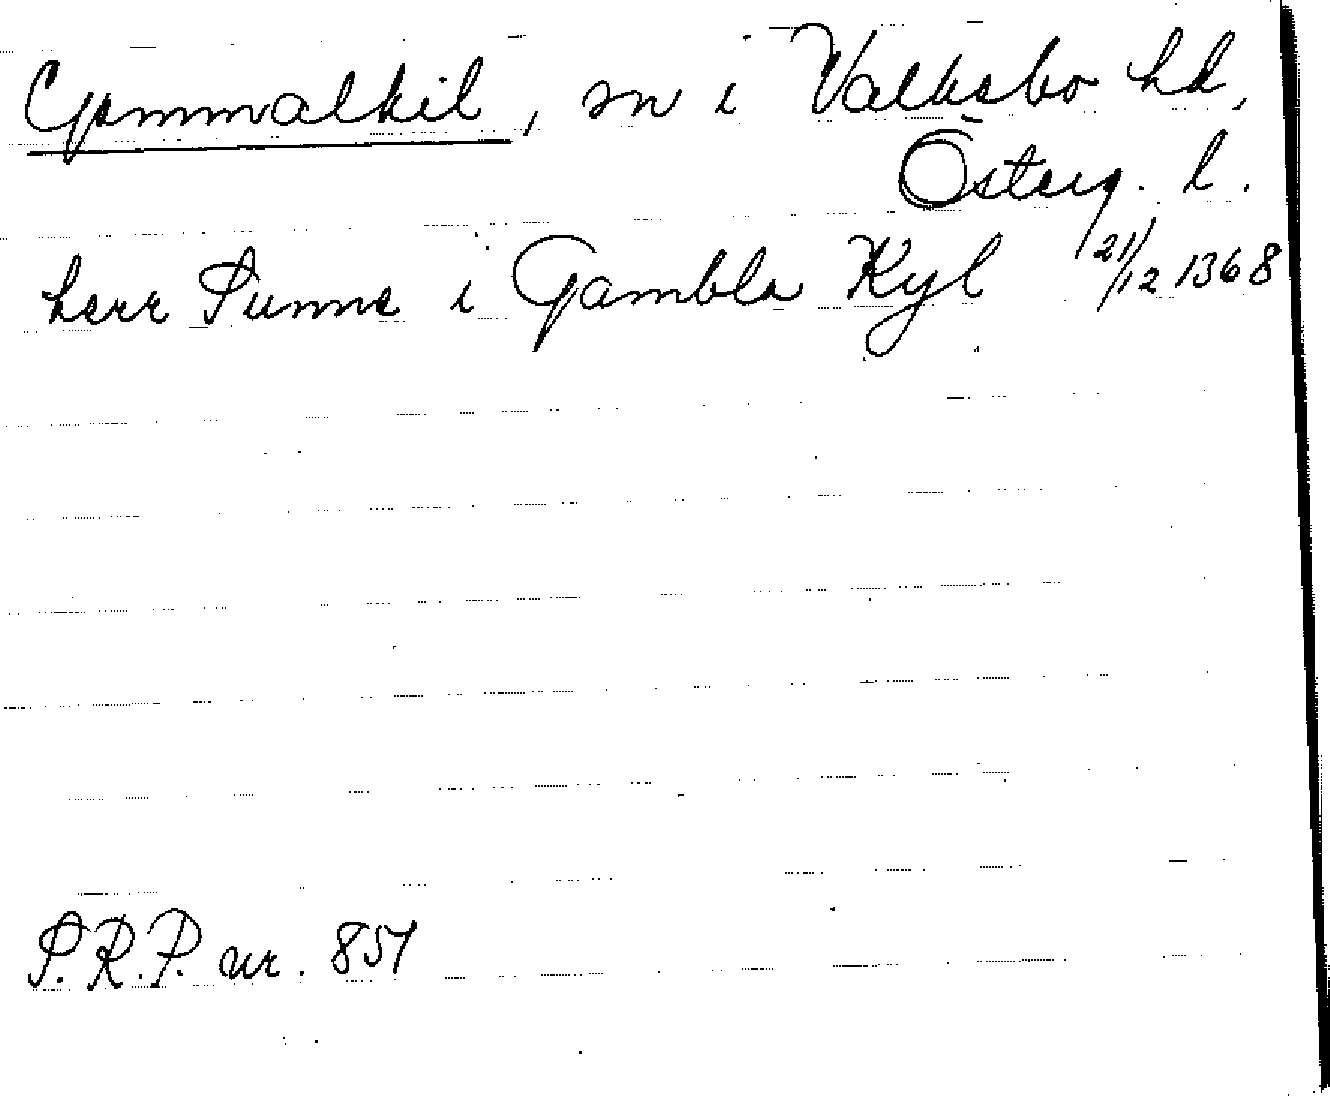 Gammalkil, sn i Valkebo hd,
Österg. l.
herr Sunne i Gambla Kyl 21/12 1368
S.R.P. nr. 857